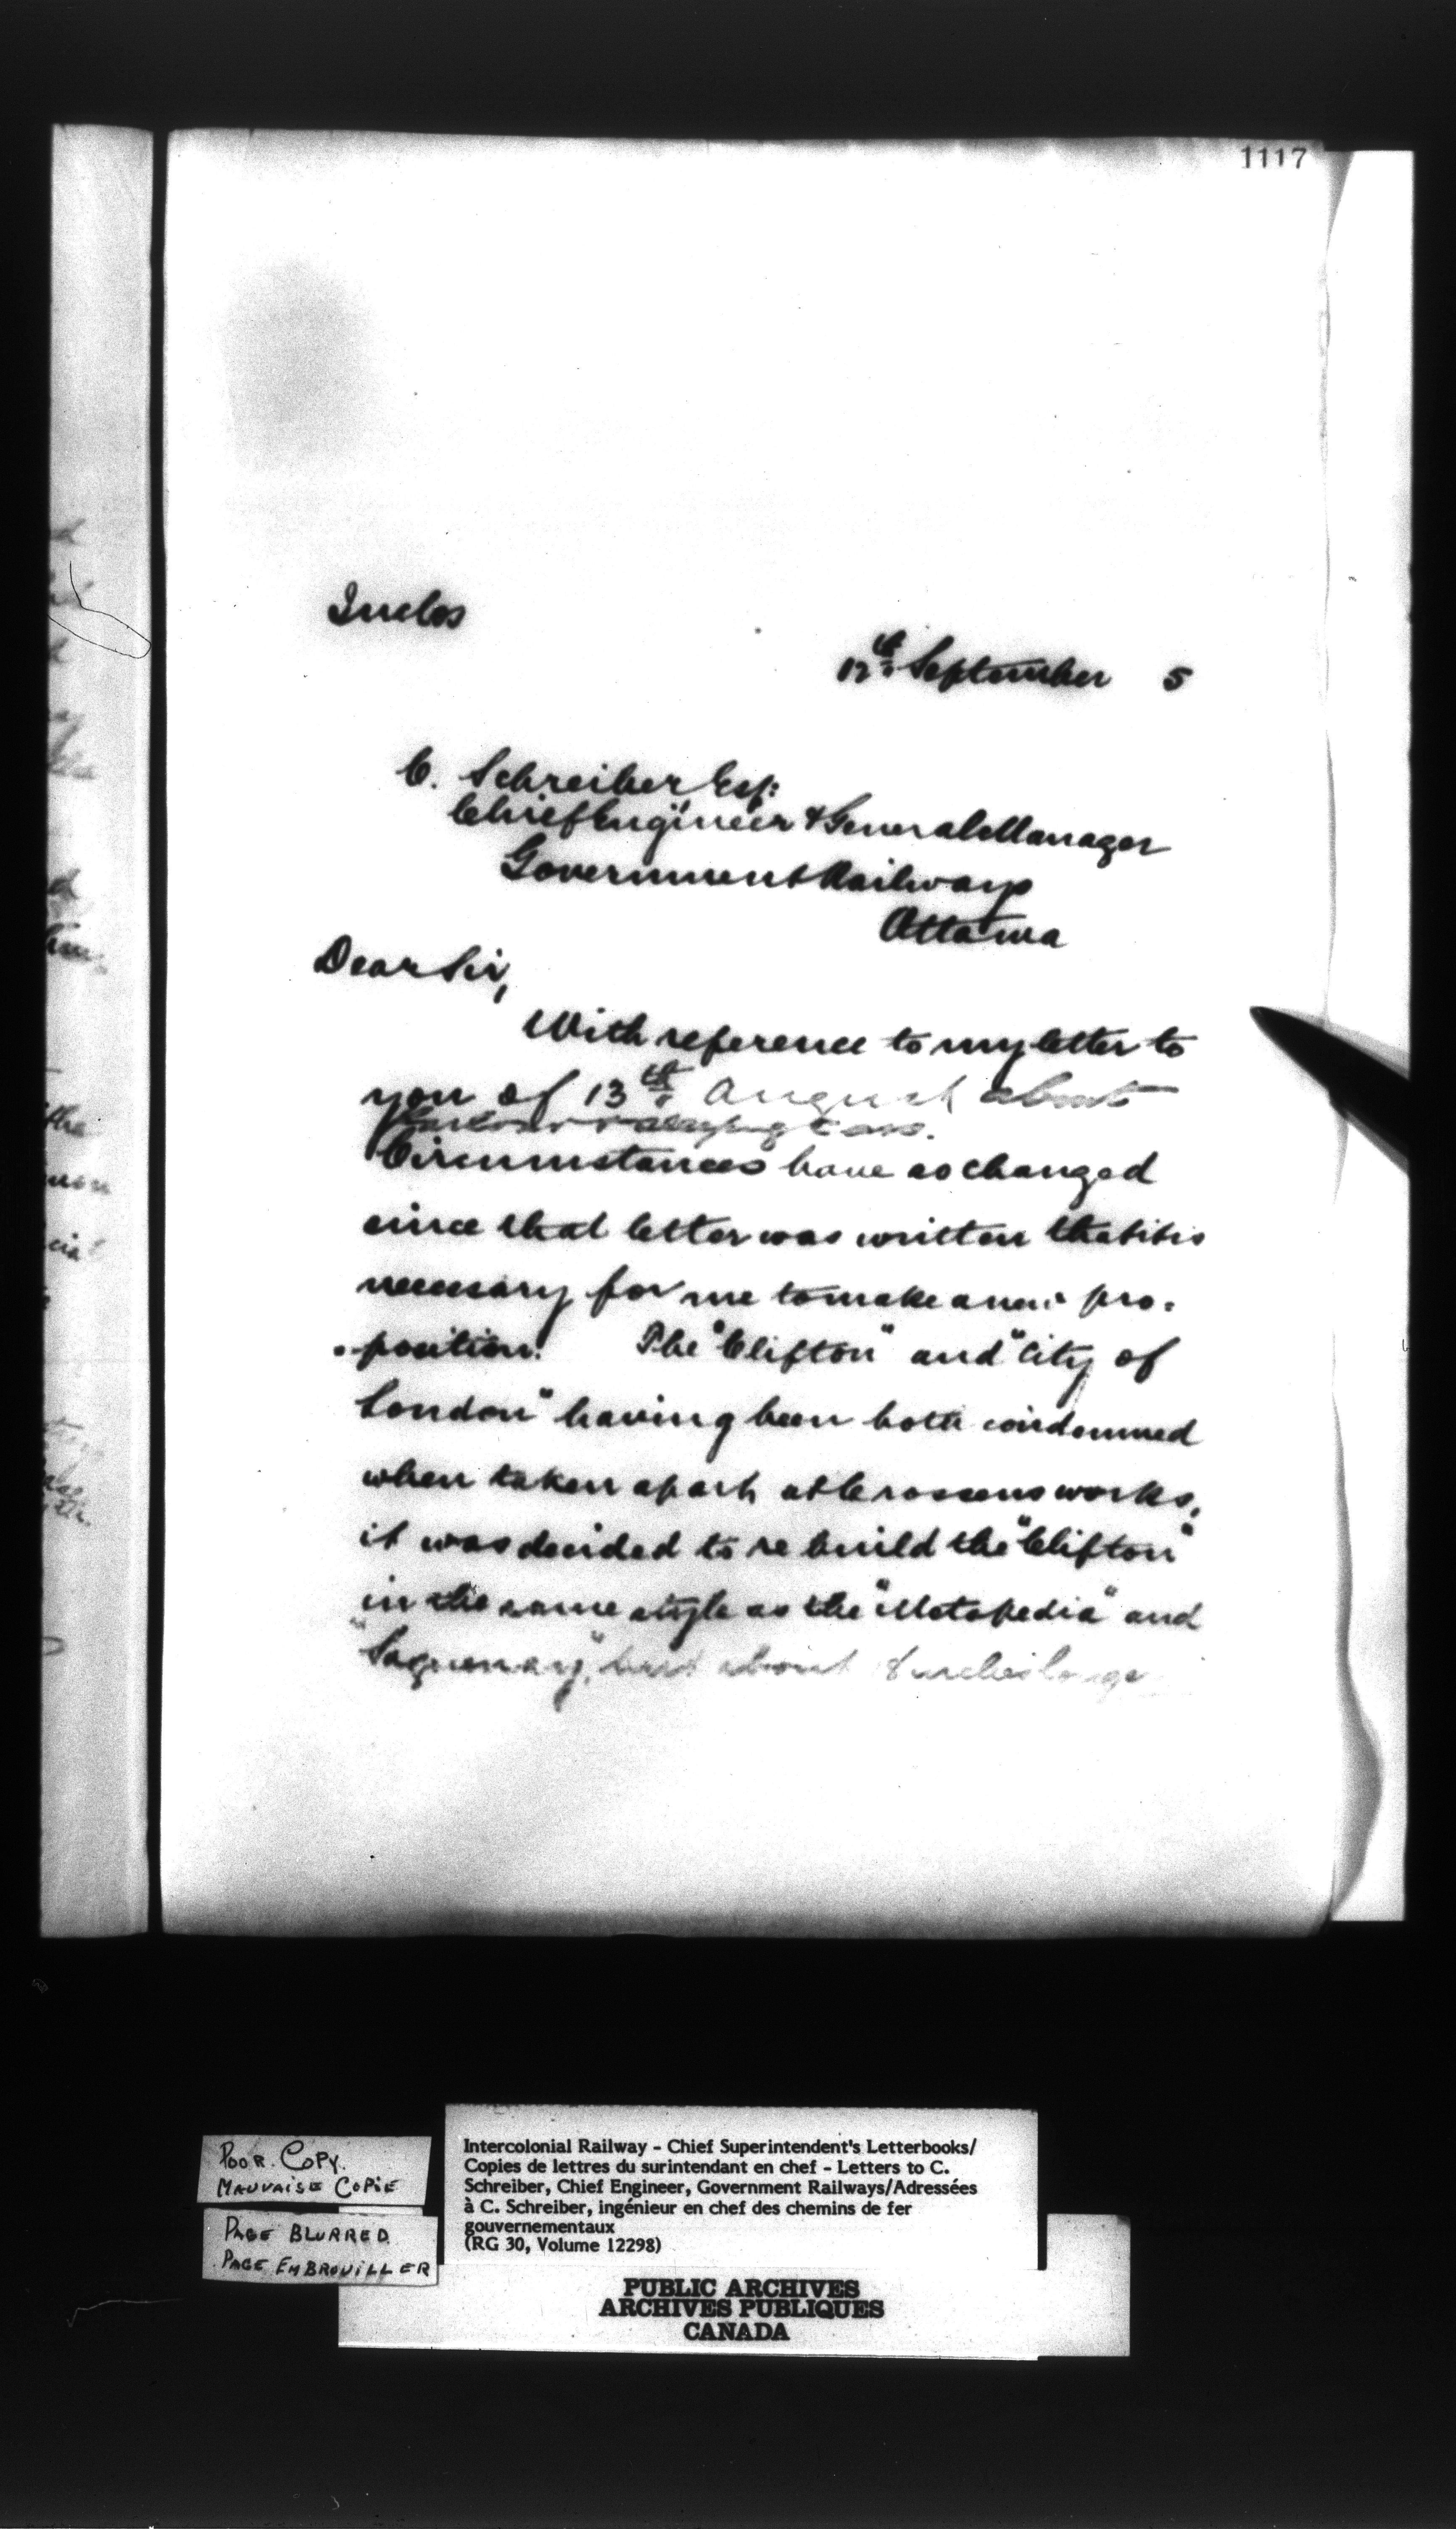 1117
Inclos
12th September 5
C. Schreiber Esq:
Chief Engineer & General Manager
Government Railways
Ottawa
Dear Sir,
With reference to my letter to
you of 13th August about
Parlour & sleeping cars.
Circumstances have so changed
since that letter was written that it is
necessary for me to make a new pro-
-position. The "Clifton" and "City of
London" having been both condemned
when taken apart at Crossens works,
it was decided to rebuild the "Clifton"
in the same style as the "Metapedia" and
"Saguenay", but about 8 inches longe
POOR COPY.
MAUVAISE COPIE
PAGE BLURRED
PAGE EMBROUILLER
Intercolonial Railway - Chief Superintendent's Letterbooks/
Copies de lettres du surintendant en chef - Letters to C.
Schreiber, Chief Engineer, Government Railways/Adressées
à C. Schreiber, ingénieur en chef des chemins de fer
gouvernementaux
(RG 30, Volume 12298)
PUBLIC ARCHIVES
ARCHIVES PUBLIQUES
CANADA